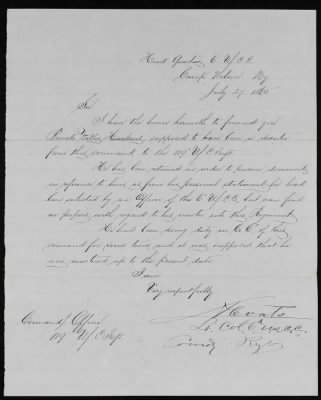 Head Quarters 6" U.S.C.C.
Camp Nelson Ky
July 27 1865
Sir
I have the honor herewith to forward you
Private Hawkins, supposed to have been a deserter
from this command to the 119" U.S.C. Inft.
He has been retained in order to procure documents
in reference to him as from his personal statement he had
been enlisted by an Officer of the 6" U.S.C.C. but can find
no papers with regard to his muster into this Regiment.
He had been doing duty in Co "C" of this
command for some time and it was supposed that he
was mustered up to the present date
I am
Very respectfully
Lt. Col 6" U.S.C.C.
Comdg Regt
Command'g Officer
119" U.S.C. Inft.